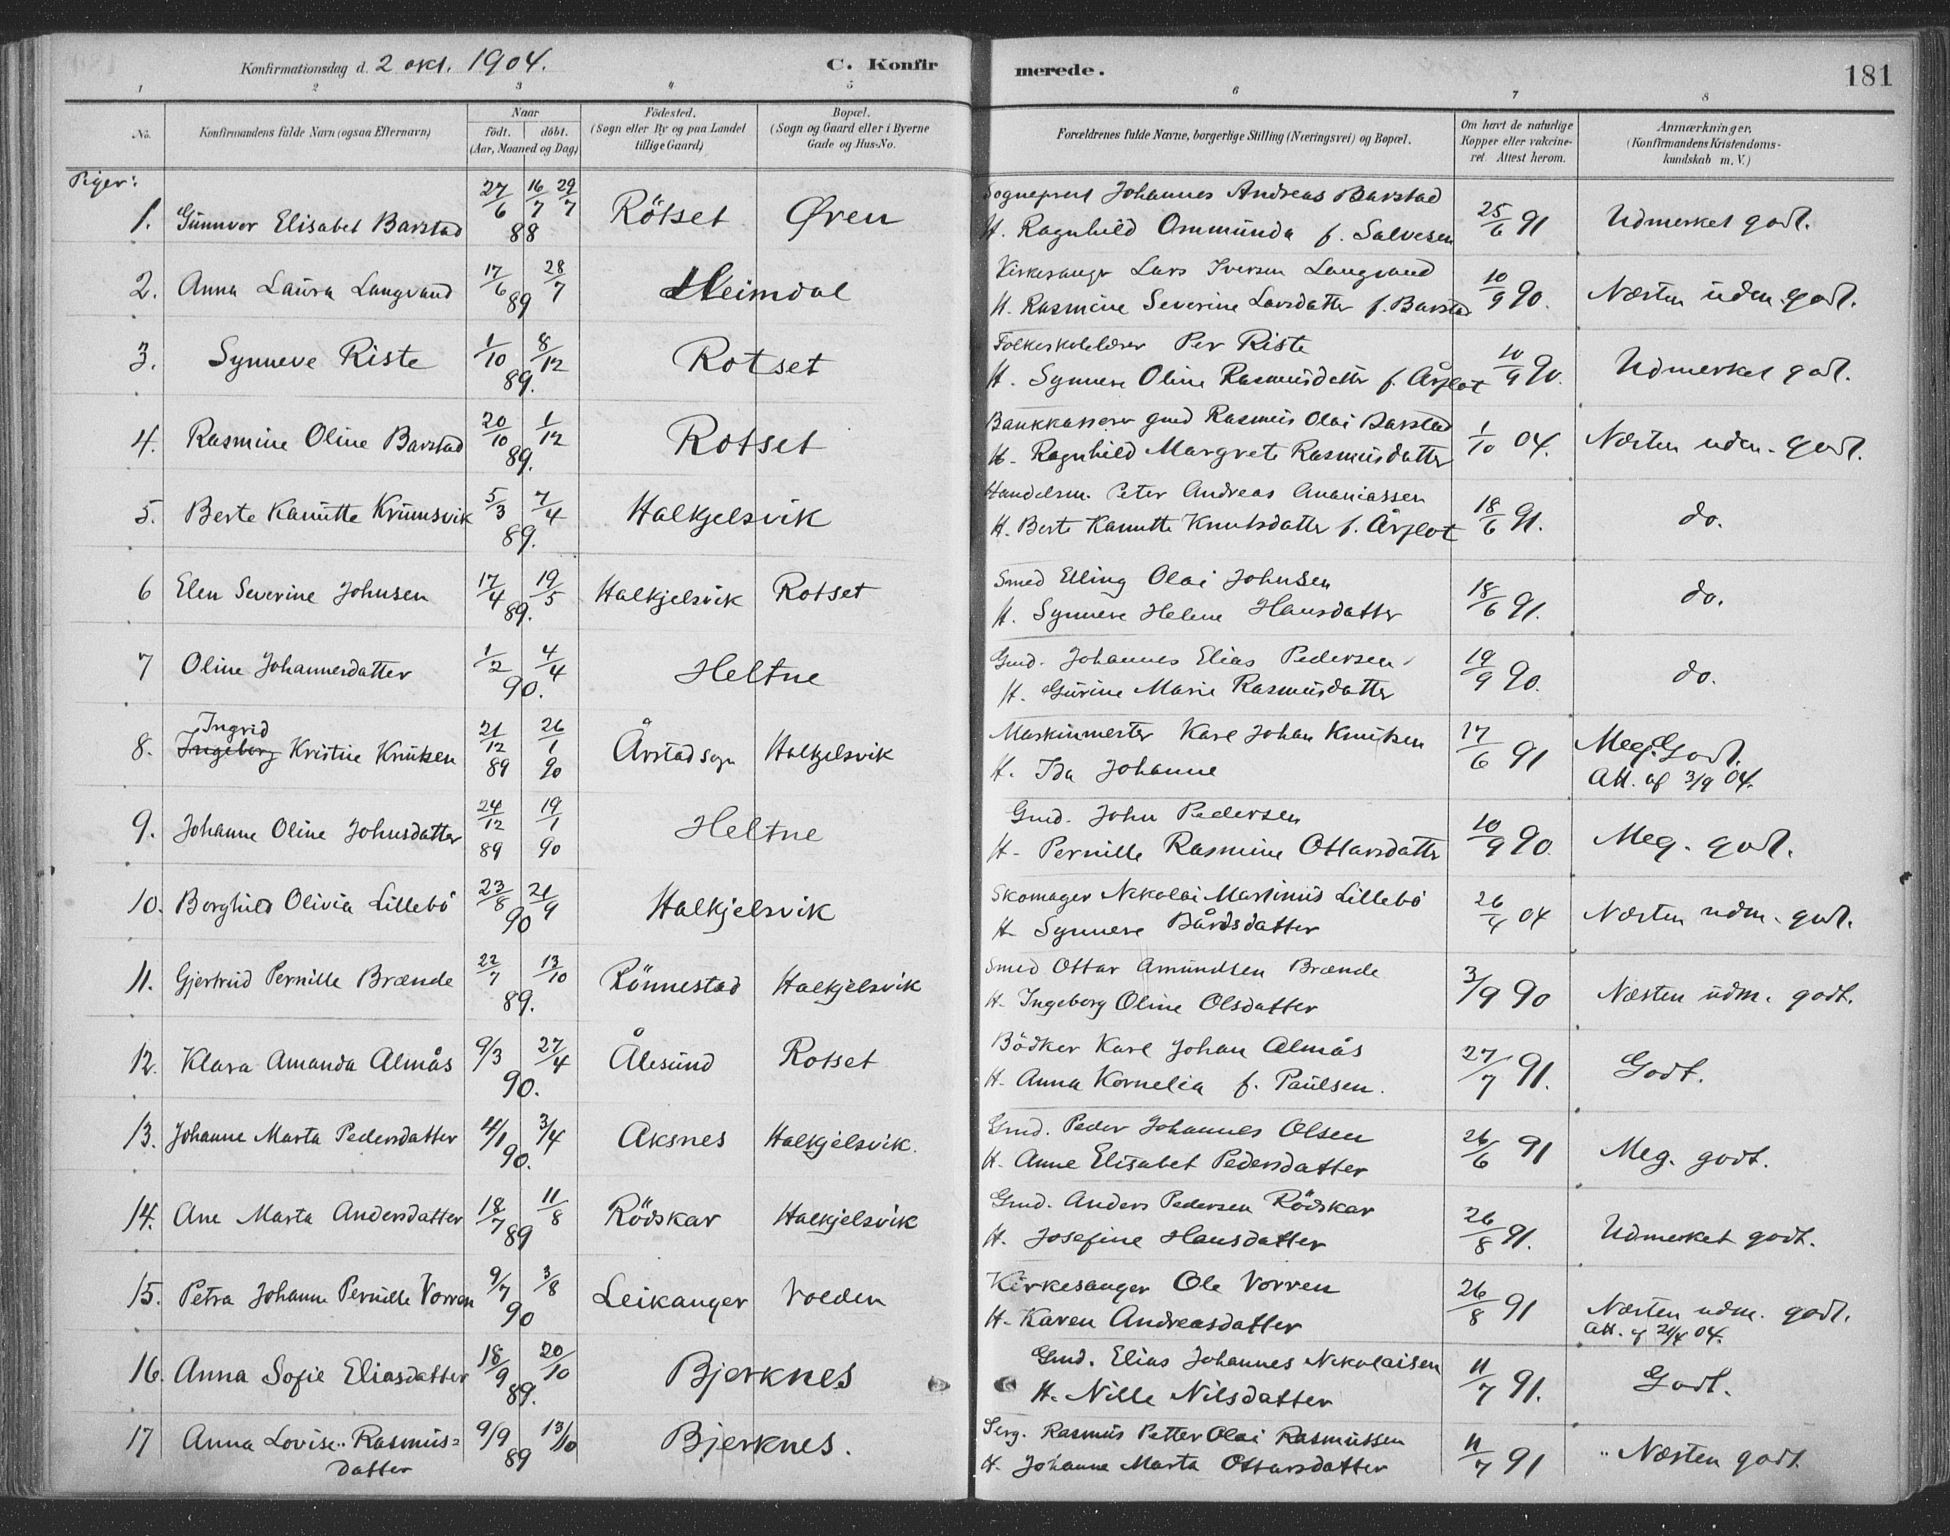 Konfirmationsdag d. 2 okt. 1904. C. Konfirmerede. 181
1 2 3 4 5 6 7 8
No. Konfirmandens fulde Navn (ogsaa Efternavn) Naar født. døbt. (Aar, Maaned og Dag) Fødested. (Sogn eller By og paa Landet tillige Gaard) Bopæl. (Sogn og Gaard eller i Byerne Gade og Hus-No. Forældrenes fulde Navne, borgerlige Stilling (Næringsvei) og Bopæl. Om havt de naturlige Kopper eller vakcineret Attest herom. Anmærkninger. (Konfirmandens Kristendomskundskab m. V.)
Piger:
1. Gunnvor Elisabet Barstad 27/6 16/7 29/7 88 Rötset Øren Sogneprest Johannes Andreas Barstad
H. Ragnhild Ommunda f. Salvesen 25/6 91 Udmerket godt.
2. Anna Laura Langvand 17/6 28/7 89 Heimdal Kirkesanger Lars Iversen Langvand
H. Rasmine Severine Larsdatter f. Barstad 10/9 90. Næsten udm. godt.
3. Synneve Riste 1/10 8/12 89. Rotset Folkeskolelærer Per Riste
H. Synneve Oline Rasmusdatter f. Årflot 10/9 90. Udmerket godt.
4. Rasmine Oline Barstad 20/10 1/12 89. Rotset Bankkasserer gmd Rasmus Olai Barstad
H. Ragnhild Margrete Rasmusdatter 1/10 04. Næsten udm. godt.
5. Berte Kanutte Krumsvik 5/3 7/4 89. Halkjelsvik Handelsm. Peter Andreas Ananiassen
H. Berte Kanutte Knutsdatter f. Årflot 18/6 91. do.
6 Elen Severine Johnsen 17/4 19/5 89. Halkjelsvik Rotset Smed Elling Olai Johnsen
H. Synneve Helene Hansdatter 18/6 91. do.
7 Oline Johannesdatter 1/2 4/4 90. Heltne Gmd. Johannes Elias Pedersen
H. Gurine Marie Rasmusdatter 19/9 90. do.
8. Ingrid
Ingeborg Kristine Knutsen 21/12 89 26/1 90 Årstad sogn Halkjelsvik Maskinmester Karl Johan Knutsen
H. Ida Johanne 17/6 91 Meg. Godt.
Att. af 3/9 04.
9. Johanne Oline Johnsdatter 24/12 89 19/1 90 Heltne Gmd. John Pedersen
H. Pernille Rasmine Ottarsdatter 10/9 90. Meg. godt.
10. Borghild Olivia Lillebö 23/8 21/9 90 Halkjelsvik Skomager Nikolai Martinus Lillebö
H. Synneve Bårdsdatter 26/4 04 Næsten udm. godt.
11. Gjertrud Pernille Brænde 22/7 13/10 89. Rönnestad Halkjelsvik Smed Ottar Amundsen Brænde
H. Ingeborg Oline Olsdatter 3/9 90 Næsten udm. godt.
12. Klara Amanda Almås 9/3 27/4 90. Ålesund Rotset Bödker Karl Johan Almås
H. Anna Kornelia f. Paulsen. 27/7 91. Godt.
13. Johanne Marta Pedersdatter 4/1 3/4 90. Aksnes Halkjelsvik. Gmd. Peder Johannes Olsen
H. Anne Elisabet Pedersdatter 26/6 91 Meg. godt.
14. Ane Marta Andersdatter 18/7 11/8 89 Rödskar Halkjelsvik Gmd. Anders Pedersen Rödskar
H. Josefine Hansdatter 26/8 91. Udmerket godt.
15. Petra Johanne Pernille Vorren 9/7 3/8 90 Leikanger Volden Kirkesanger Ole Vorren
H. Karen Andreasdatter 26/8 91 Næsten udm. godt.
Att. af 21/4 04.
16. Anna Sofie Eliasdatter 18/9 20/10 89. Bjerknes Gmd. Elias Johannes Nikolaisen
H. Nille Nilsdatter 11/7 91. Godt.
17 Anna Lovise Rasmus=
datter 9/9 13/10 89 Bjerknes. Serg. Rasmus Petter Olai Rasmussen
H. Johanna Marta Ottarsdatter 11/7 91 Næsten godt.